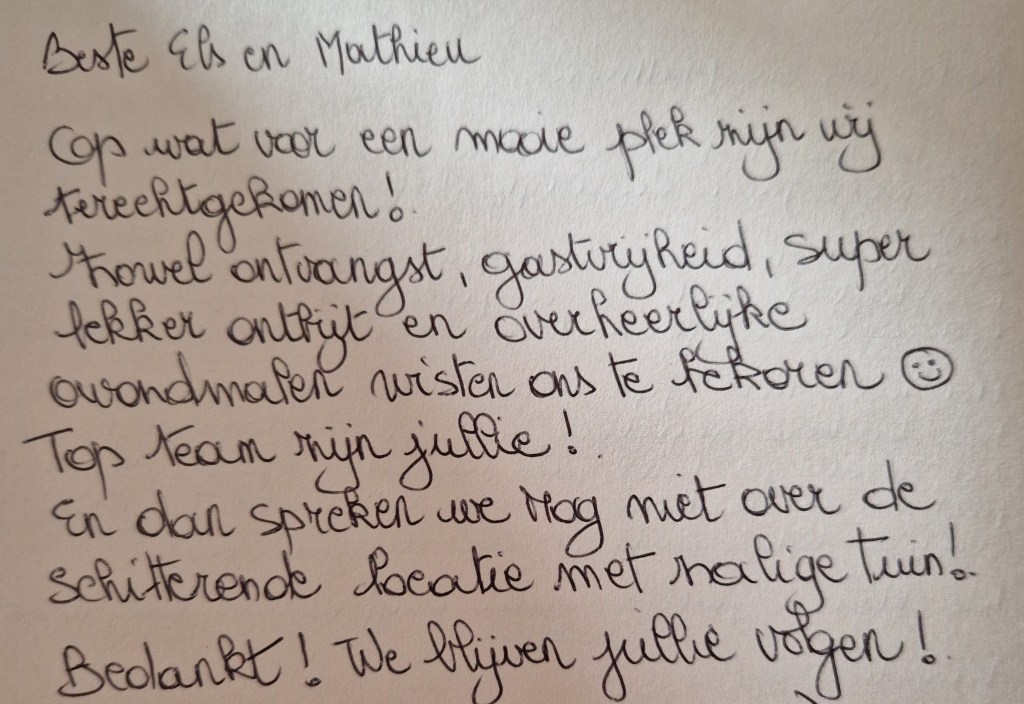 Beste Els en Mathieu
Op wat voor een mooie plek zijn wij
terechtgekomen!
Zowel ontvangst, gastvrijheid, super
lekker ontbijt en overheerlijke
avondmalen wisten ons te bekoren ☺
Top team zijn jullie!
En dan spreken we nog niet over de
schitterende locatie met zalige tuin!
Bedankt! We blijven jullie volgen!